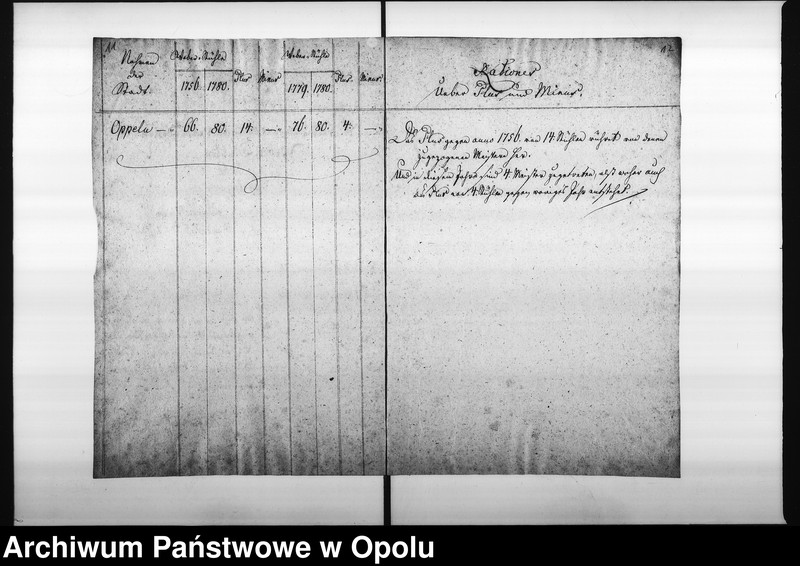 11
Nahmen
der
Stadt.
Weber-Stühle
1756. 1780. Plus Minus
Weber-Stühle
1779. 1780. Plus. Minus.
Oppeln — " 66. 80. 14. — " 76. 80. 4. — "
12
Rationes
Ueber Plus und Minus.
Das Plus gegen anno 1756. von 14 Stühlen rühret von denen
zugezogenen Meistern her.
Und in diesem Jahre sind 4 Meister zugetreten, also woher auch
das Plus von 4 Stühlen gegen voriges Jahr entstehet.
Archiwum Państwowe w Opolu